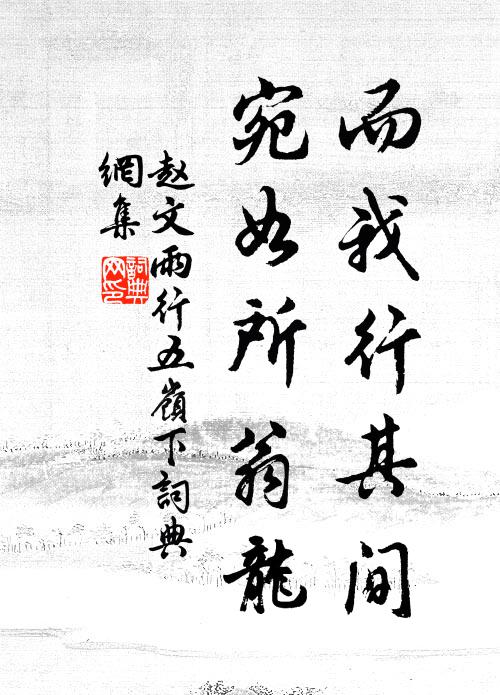 而我行其間
宛如所翁龍
赵文雨行五嶺下詞典
網集
詞典
网印